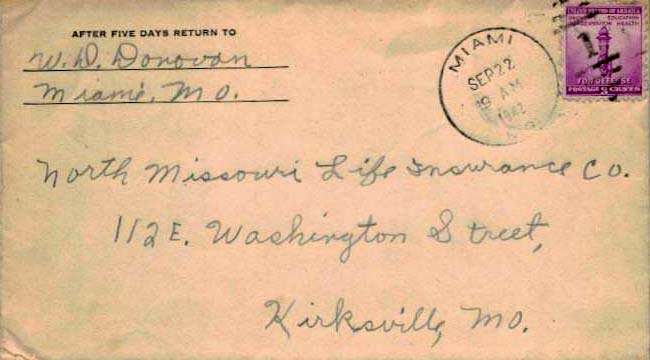 AFTER FIVE DAYS RETURN TO
W. D. Donovan
Miami, MO.
MIAMI
SEP 22
9 AM
1942
UNITED STATES OF AMERICA
EDUCATION
HEALTH
FOR DEFENSE
POSTAGE 3 CENTS
North Missouri Life Insurance Co.
112 E. Washington Street,
Kirksville, Mo.